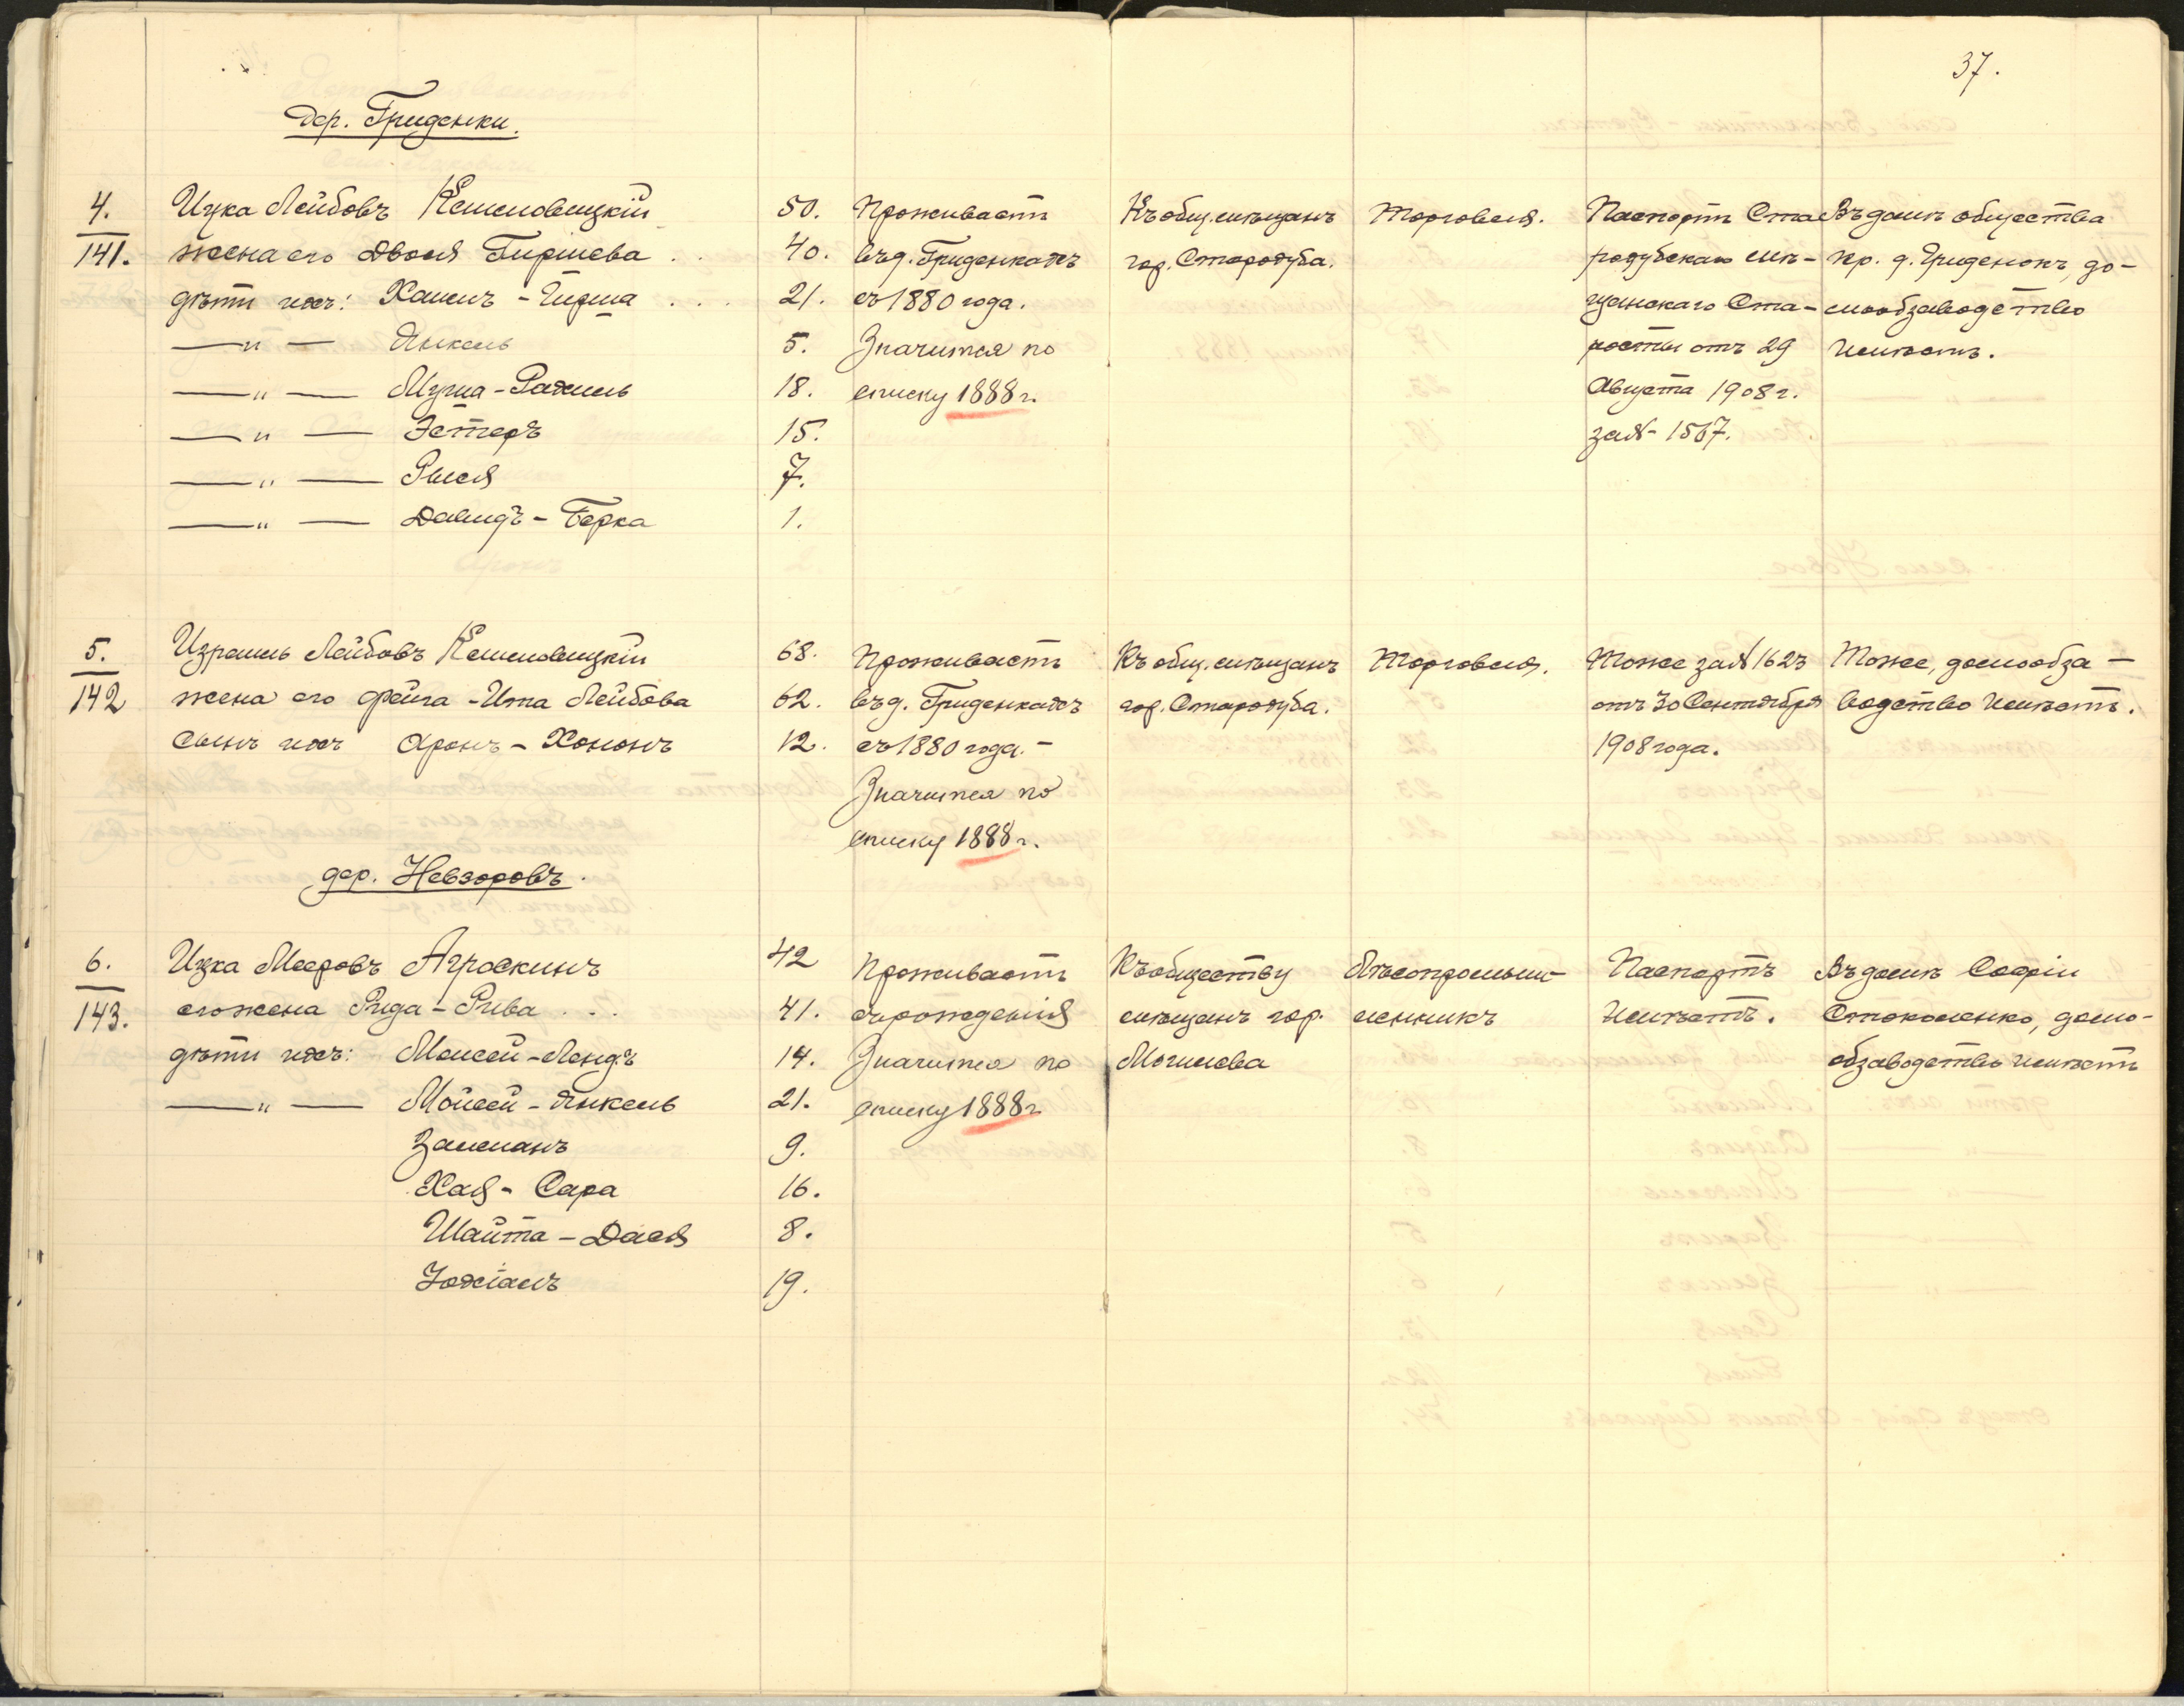 37.
Дер. Гриденки.
4.
141.
Ицка Лейбовъ Кемеловицкій
жена его Двося Гиршева . .
дѣти ихъ: Хаимъ - Гирша . . .
—„— Янкель
—„— Муша - Рахиль
—„— Эстеръ
—„— Рыся
—„— Давидъ - Берка
50.
40.
21.
5.
18.
15.
7.
1.
Проживаетъ
въ д. Гриденкахъ
съ 1880 года.
Значится по
списку 1888 г.
Къ общ. мѣщанъ
гор. Стародуба.
Торговля.
Паспортъ Ста
родубскаго мѣ-
щанскаго Ста-
росты отъ 29
Августа 1908 г.
за № 1567.
Въ домѣ общества
кр. д. Гриденокъ, до-
мообзаводство
имѣетъ.
5.
142
Израиль Лейбовъ Кемеловицкій
жена его Фейга - Ита Лейбова
сынъ ихъ Аронъ - Хононъ
68.
62.
12.
Проживаетъ
въ д. Гриденкахъ
съ 1880 года. -
Значится по
списку 1888 г.
Къ общ. мѣщанъ
гор. Стародуба.
Торговля.
Тоже за № 1623
отъ 30 Сентября
1908 года.
Тоже, домообза-
водство имѣетъ.
дер. Невзоровъ.
6.
143.
Ицка Мееровъ Агроскинъ
его жена Рида - Рива . . .
дѣти ихъ: Моисей - Лендъ
—„— Мойсей - Янкель
Залманъ
Хая - Сара
Шайта - Дася
Іохіамъ
42
41.
14.
21.
9.
16.
8.
19.
Проживаетъ
съ рожденія
Значится по
списку 1888 г
Къ обществу
мѣщанъ гор.
Могилева
Лѣсопромыш-
ленникъ
Паспортъ
имѣетъ.
Въ домѣ Софіи
Стоколенко, домо-
обзаводство имѣетъ